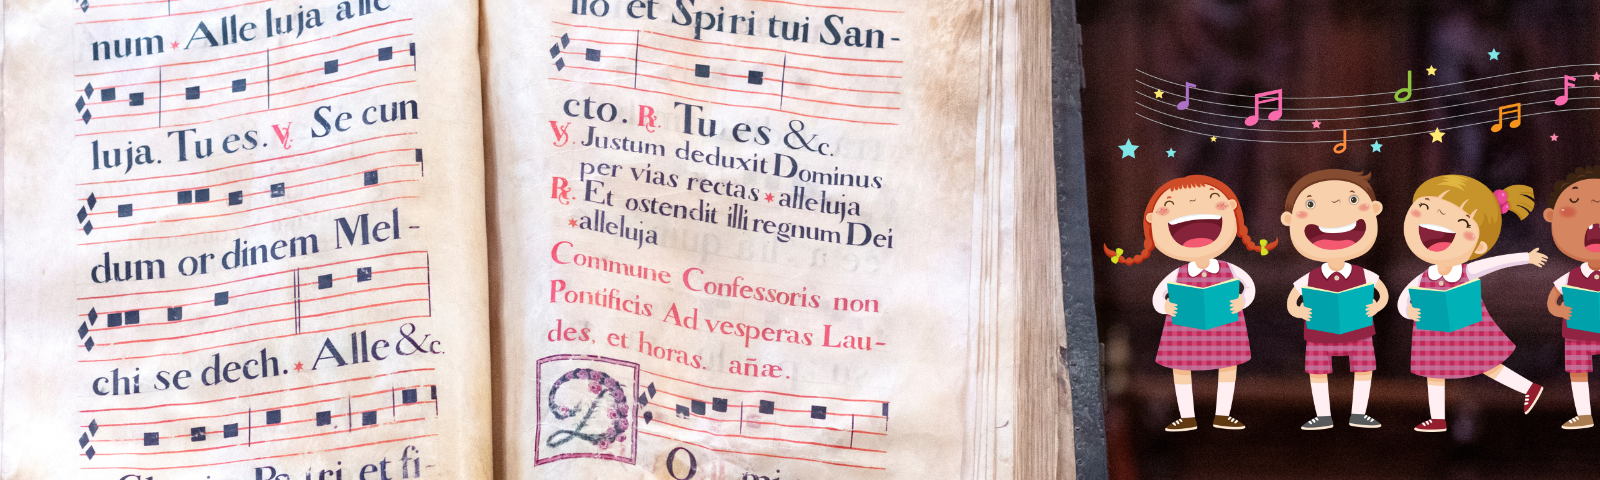 num * Alleluja alle
luja. Tu es. ℣. Secun
dum ordinem Mel-
chisedech. * Alle &c.
Patri et fi-
lio et Spiri tui San-
cto. ℟. Tu es &c.
℣. Justum deduxit Dominus
per vias rectas * alleluja
℟. Et ostendit illi regnum Dei
* alleluja
Commune Confessoris non
Pontificis Ad vesperas Lau-
des, et horas. añæ.
D
O mi